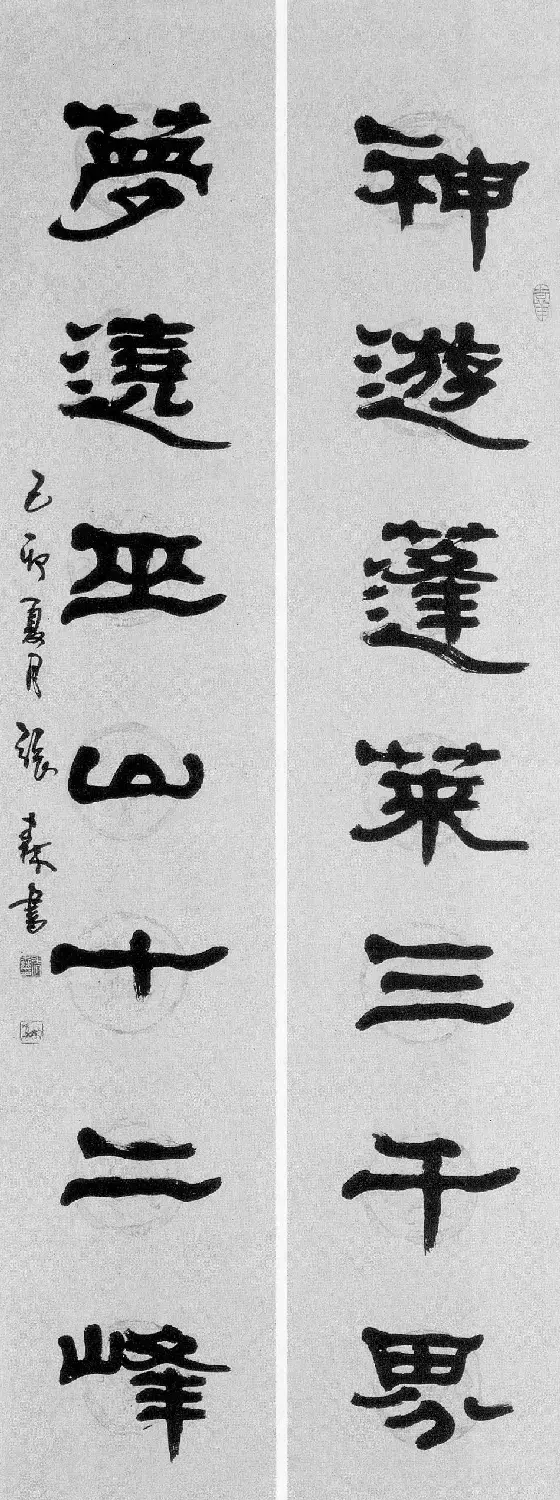 神遊蓬萊三千界
夢遶巫山十二峰
己卯夏月張森書